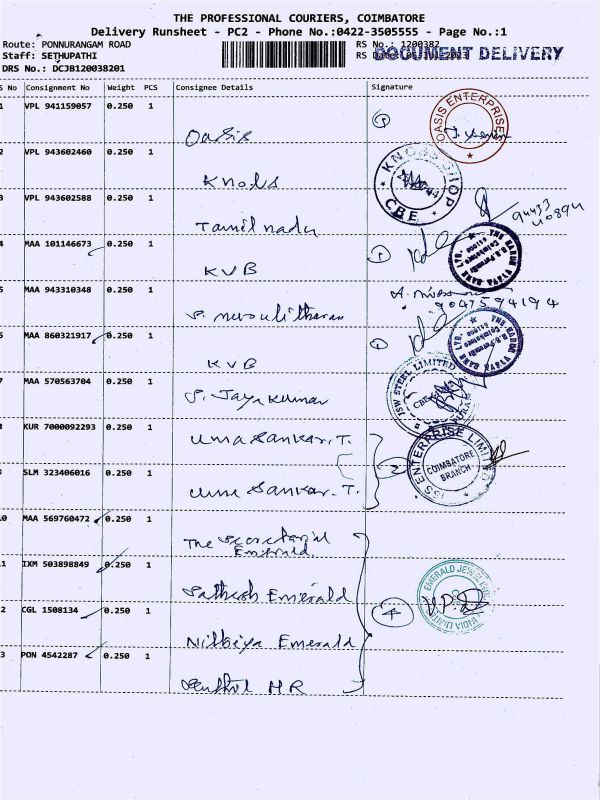 THE PROFESSIONAL COURIERS, COIMBATORE
Delivery Runsheet - PC2 - Phone No.:0422-3505555 - Page No.:1
Route: PONNURANGAM ROAD
RS No.: 1200382
Staff: SETHUPATHI
RS Date:
DOCUMENT DELIVERY
DRS No.: DCJB120038201
S No Consignment No Weight PCS Consignee Details Signature
1 VPL 941159057 0.250 1 Oasis 1 OASIS ENTERPRISES
2 VPL 943602460 0.250 1 Knobs KNOBS SHOP CBE
3 VPL 943602588 0.250 1 Tamil nadu 94433
4 MAA 101146673 0.250 1 KVB 1 THE KARUR VYSYA BANK LTD. Coimbatore
5 MAA 943310348 0.250 1 9047594194
6 MAA 860321917 0.250 1 KVB 1 THE KARUR VYSYA BANK LTD. Coimbatore
7 MAA 570563704 0.250 1 S. Jaya Kumar JSW STEEL LIMITED CBE
8 KUR 7000092293 0.250 1 Uma Sankar. T. 2 ISS ENTERPRISE LIMITED COIMBATORE BRANCH
9 SLM 323406016 0.250 1 Uma Sankar. T.
10 MAA 569760472 0.250 1 The Secretarial Emerald
11 IXM 503898849 0.250 1 Sathish Emerald EMERALD JEWEL INDIA LIMITED
12 CGL 1508134 0.250 1 Emerald 4 V.P.
13 PON 4542287 0.250 1 Senthil HR